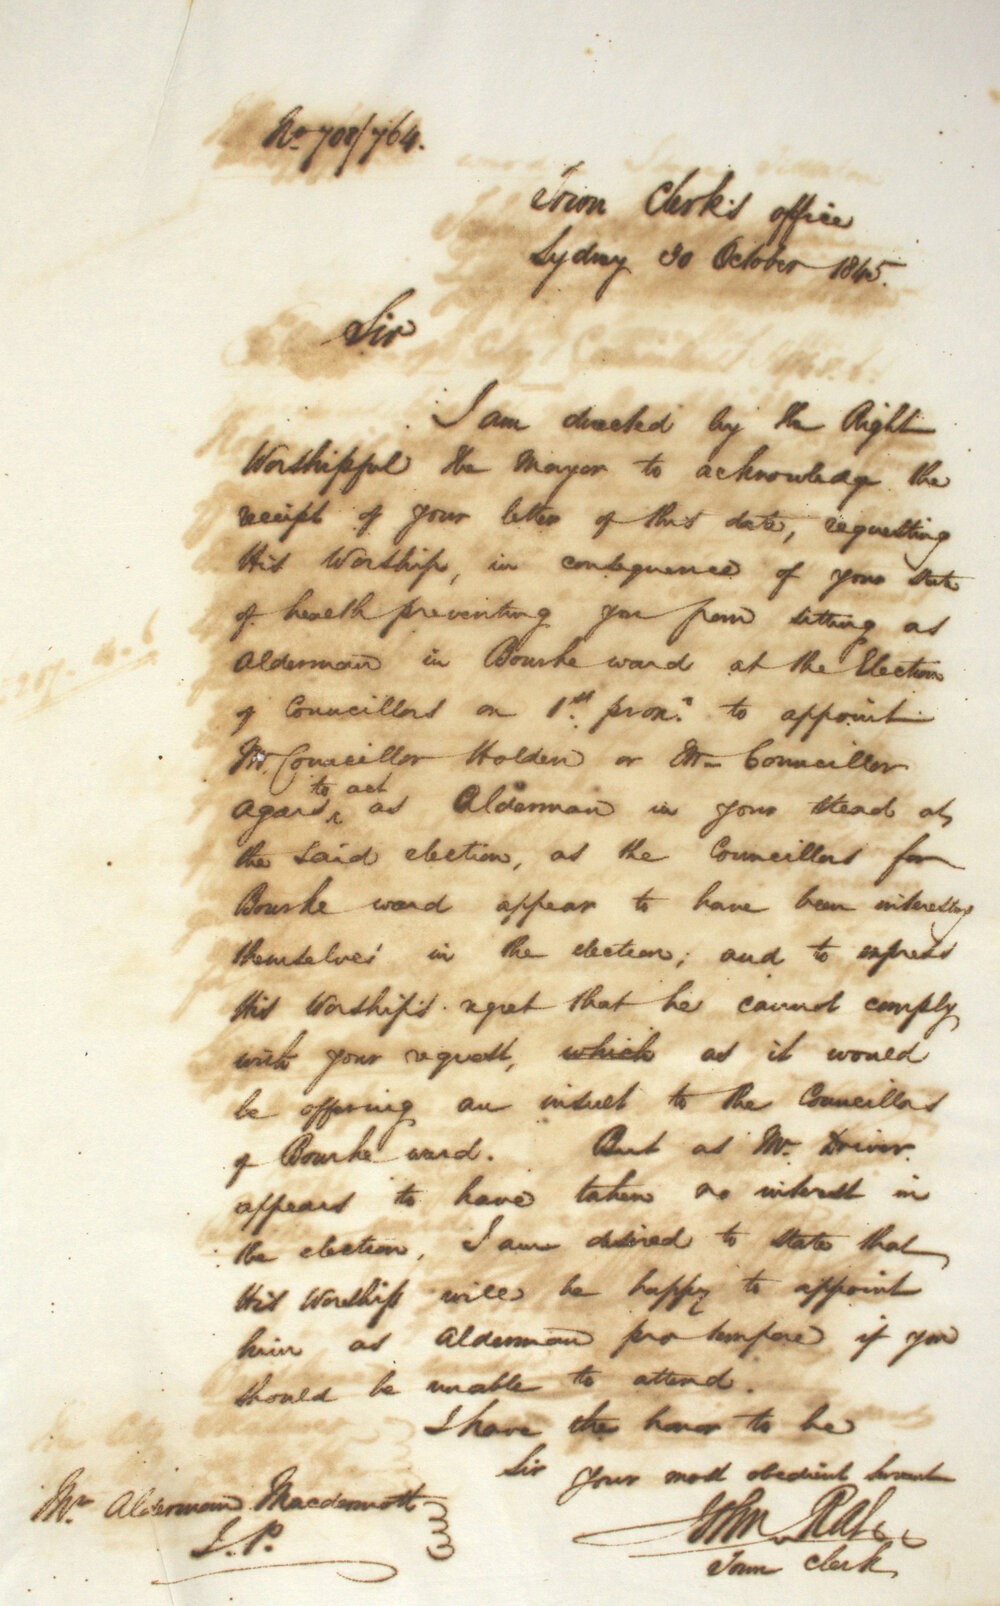 No 708/764.
Town Clerk's office
Sydney 30 October 1845.
Sir
I am directed by the Right
Worshipful the Mayor to acknowledge the
receipt of your letter of this date, requesting
His Worship, in consequence of your state
of health preventing you from sitting as
Alderman in Bourke ward at the Election
of Councillors on 1st proxo. to appoint
Mr. Councillor Holden or Mr Councillor
to act
Agars as Alderman in your stead at
the said election, as the Councillors for
Bourke ward appear to have been interesting
themselves in the election; and to express
His Worship's regret that he cannot comply
with your request, which as it would
be offering an insult to the Councillors
of Bourke ward. But as Mr. Driver
appears to have taken no interest in
the election, I am desired to state that
His Worship will be happy to appoint
him as Alderman pro tempore if you
should be unable to attend.
I have the honor to be
Sir
Your most obedient Servant
Mr. Alderman Macdermott
J.P.
John Rae
Town Clerk